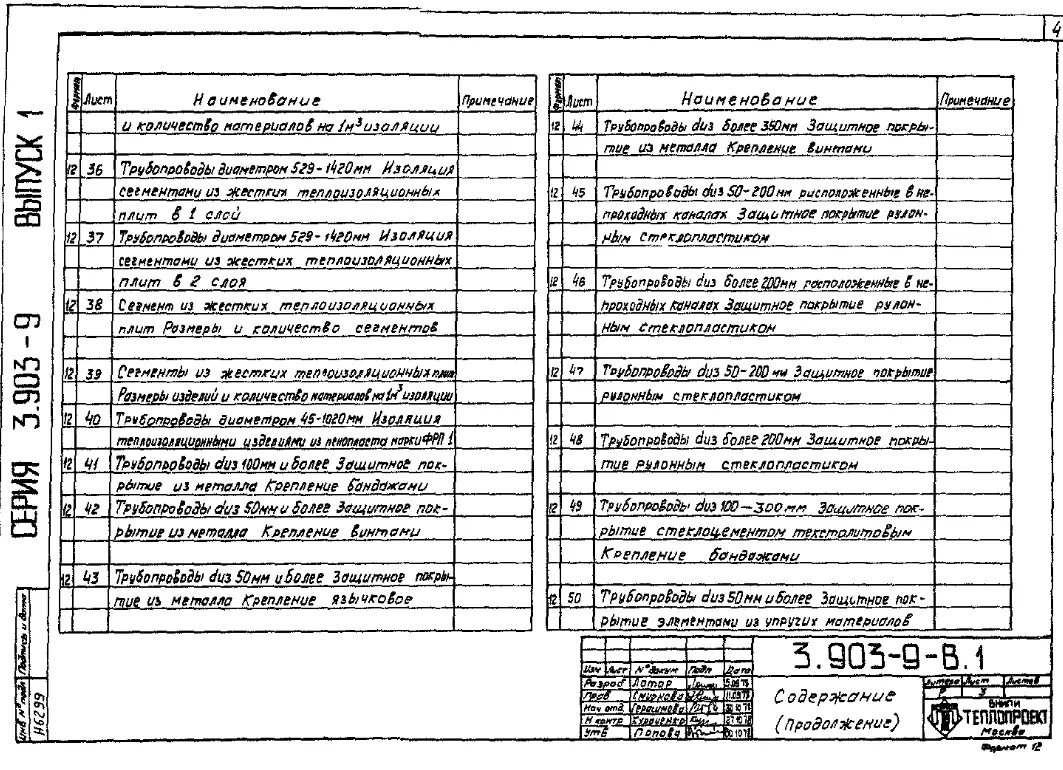 4
СЕРИЯ 3.903-9 ВЫПУСК 1
Формат Лист Наименование Примечание
и количество материалов на 1м³ изоляции
12 36 Трубопроводы диаметром 529-1420мм Изоляция
сегментами из жестких теплоизоляционных
плит в 1 слой
12 37 Трубопроводы диаметром 529-1420мм Изоляция
сегментами из жестких теплоизоляционных
плит в 2 слоя
12 38 Сегмент из жестких теплоизоляционных
плит Размеры и количество сегментов
12 39 Сегменты из жестких теплоизоляционных плит
Размеры изделий и количество материалов на 1м³ изоляции
12 40 Трубопроводы диаметром 45-1020мм Изоляция
теплоизоляционными изделиями из пенопласта марки ФРП 1
12 41 Трубопроводы dиз 100мм и более Защитное пок-
рытие из металла Крепление бандажами
12 42 Трубопроводы dиз 50мм и более Защитное пок-
рытие из металла Крепление винтами
12 43 Трубопроводы dиз 50мм и более Защитное покры-
тие из металла Крепление язычковое
Формат Лист Наименование Примечание
12 44 Трубопроводы dиз более 350мм Защитное покры-
тие из металла Крепление винтами
12 45 Трубопроводы dиз 50-200мм расположенные в не-
проходных каналах Защитное покрытие рулон-
ным стеклопластиком
12 46 Трубопроводы dиз более 200мм расположенные в не-
проходных каналах Защитное покрытие рулон-
ным стеклопластиком
12 47 Трубопроводы dиз 50-200мм Защитное покрытие
рулонным стеклопластиком
12 48 Трубопроводы dиз более 200мм Защитное покры-
тие рулонным стеклопластиком
12 49 Трубопроводы dиз 100-300мм Защитное пок-
рытие стеклоцементом текстолитовым
Крепление бандажами
12 50 Трубопроводы dиз 50мм и более Защитное пок-
рытие элементами из упругих материалов
Инв № подл Подпись и дата
Н6299
3.903-9-В.1
Изм Лист № докум Подп Дата
Разраб Лотар
Пров Смирнова
Нач отд Герасимова
Н контр Кураченко
Утв Попова
Содержание
(продолжение)
Литера Лист Листов
Р 3
ВНИПИ
ТЕПЛОПРОЕКТ
Москва
Формат 12